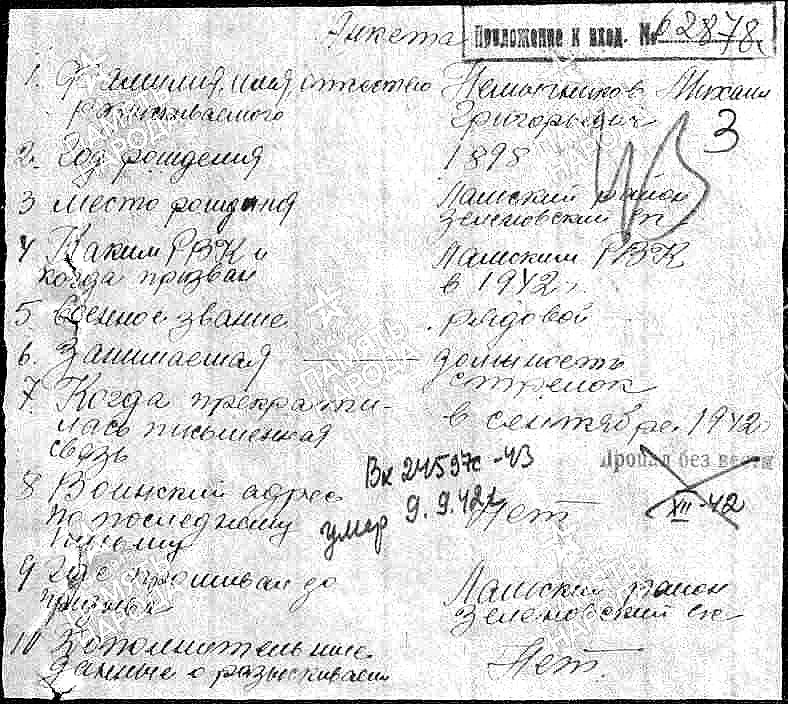 Анкета
Приложение к вход. № 62878.
1. Фамилия, имя отчество
разыскиваемого
Михаил
Григорьевич
3
2. год рождения
1898
3 место рождения
Ламский район
Зеленовский с/с
4 Каким РВК и
когда призван
Ламским РВК
в 1942 г.
5 Военное звание
рядовой
6. Занимаемая должность
стрелок
7. Когда прекрати-
лась письменная
связь
в сентябре 1942
Пропал без вести
XII-42
8 Воинский адрес
по последнему
письму
Нет
Вк 24597с-43
умер 9.9.42г
9 Где проживал до
призыва
Ламский район
Зеленовский с/с
10 Дополнительные
данные о разыскиваем
Нет.
ПАМЯТЬ
НАРОДА